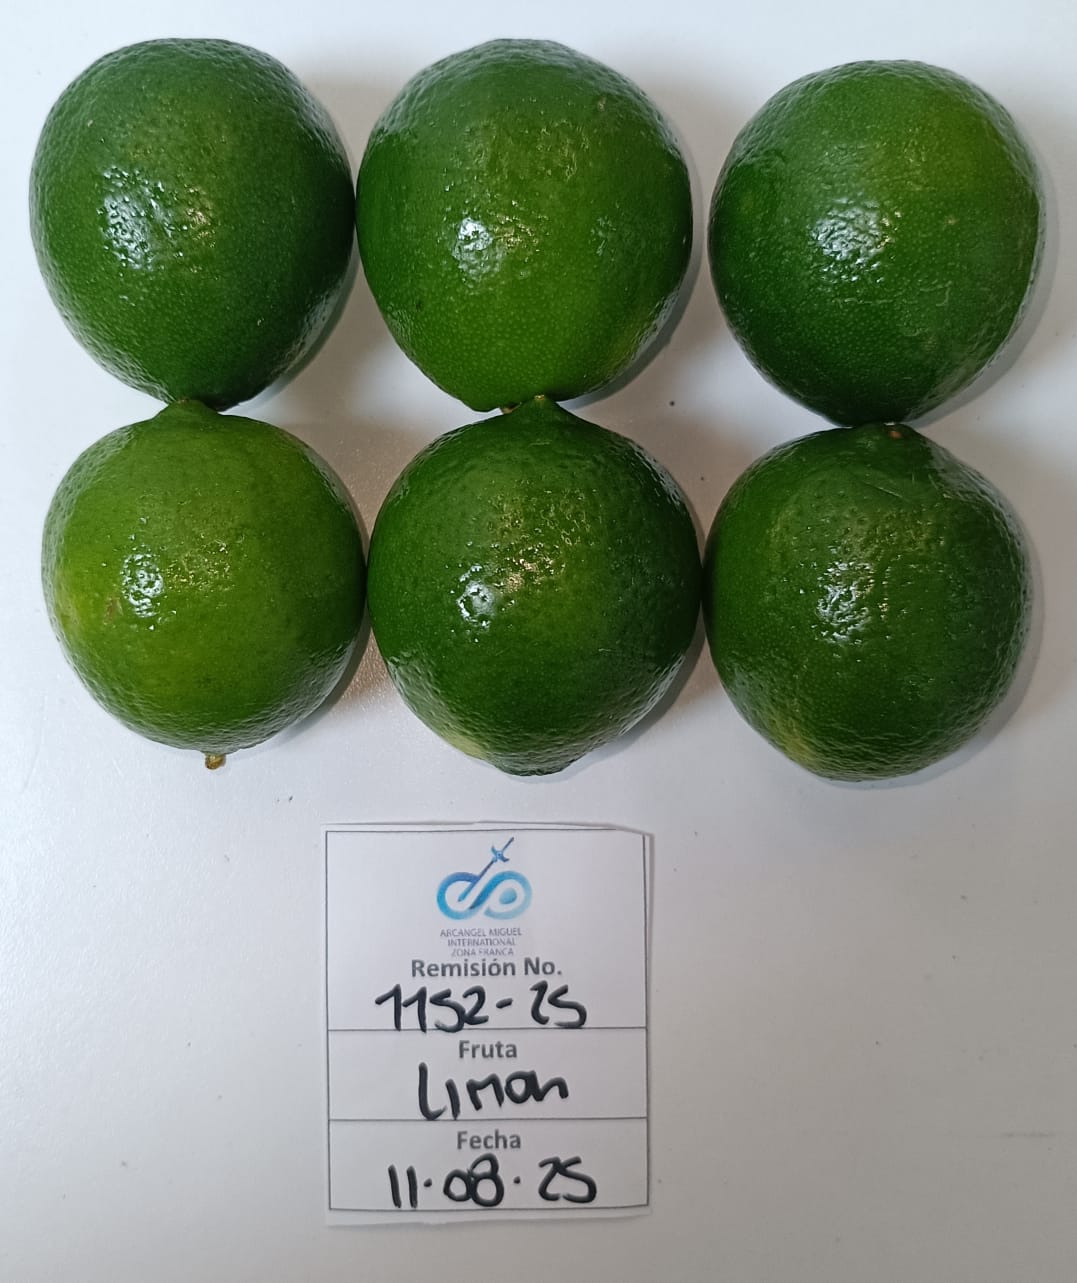 ARCANGEL MIGUEL
INTERNATIONAL
ZONA FRANCA
Remisión No.
1152-25
Fruta
Limon
Fecha
11·08·25